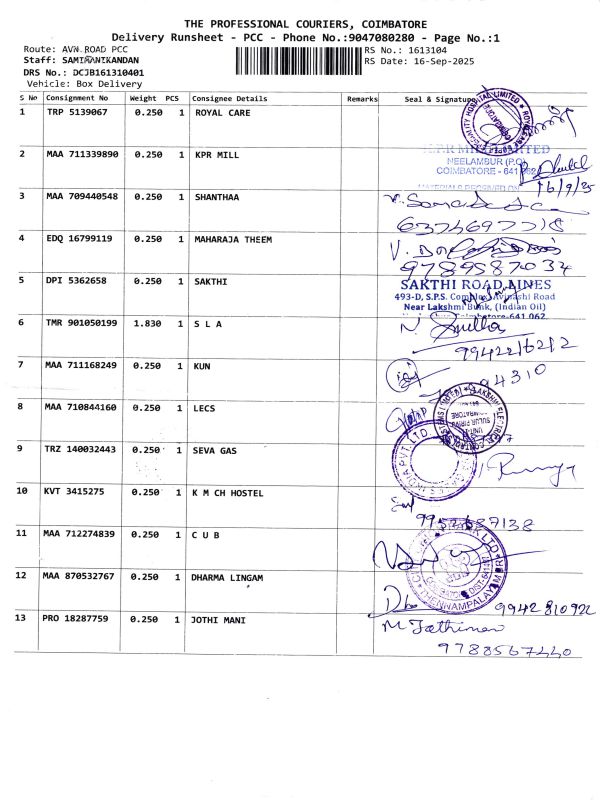 THE PROFESSIONAL COURIERS, COIMBATORE
Delivery Runsheet - PCC - Phone No.:9047080280 - Page No.:1
Route: AVN.ROAD PCC
RS No.: 1613104
Staff: SAMIMANIKANDAN
RS Date: 16-Sep-2025
DRS No.: DCJB161310401
Vehicle: Box Delivery
S No Consignment No Weight PCS Consignee Details Remarks Seal & Signature
1 TRP 5139067 0.250 1 ROYAL CARE
2 MAA 711339890 0.250 1 KPR MILL
NEELAMBUR (P.O)
COIMBATORE - 641 062
MATERIALS RECEIVED ON 16/9/25
3 MAA 709440548 0.250 1 SHANTHAA
4 EDQ 16799119 0.250 1 MAHARAJA THEEM
9789587034
5 DPI 5362658 0.250 1 SAKTHI
SAKTHI ROAD LINES
493-D, S.P.S. Complex Avinashi Road
Near Lakshmi Bunk, (Indian Oil)
6 TMR 901050199 1.830 1 S L A
9942216212
7 MAA 711168249 0.250 1 KUN
94310
8 MAA 710844160 0.250 1 LECS
9 TRZ 140032443 0.250 1 SEVA GAS
10 KVT 3415275 0.250 1 K M CH HOSTEL
11 MAA 712274839 0.250 1 C U B
12 MAA 870532767 0.250 1 DHARMA LINGAM
9942810922
13 PRO 18287759 0.250 1 JOTHI MANI
9788567440